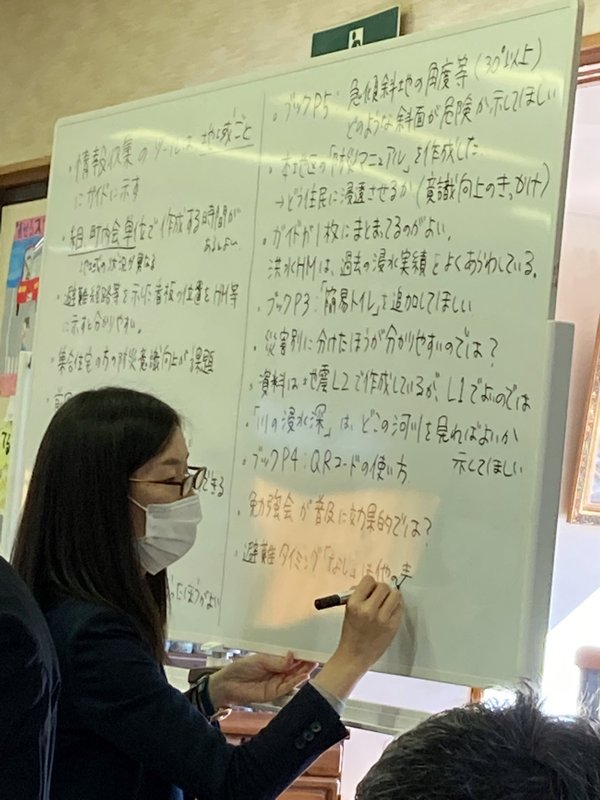 ・情報収集のツールは地域ごと
にガイドに示す
・組、町内会単位で作成する時間が
あるしよい
地域の状況が異なる
・避難経路等を示した看板の位置をHM等
に示すと分かりやすい。
・集合住宅の方の防災意識向上が課題
できる
たほうがよい
・ブックP5：急傾斜地の角度等(30°以上)
どのような斜面が危険か示してほしい
・本地区の「タイムマニュアル」を作成した
→どう住民に浸透させるか(意識向上のきっかけ)
・ガイドが1枚にまとまってるのがよい。
洪水HMは、過去の浸水実績をよくあらわしている。
・ブックP3：「簡易トイレ」を追加してほしい
・災害別に分けたほうが分かりやすいのでは？
・資料は地震L2で作成しているが、L1でよいのでは
・「川の浸水深」は、どこの河川を見ればよいか
示してほしい
・ブックP4：QRコードの使い方
・勉強会が普及に効果的では？
・避難タイミング「なし」は他の